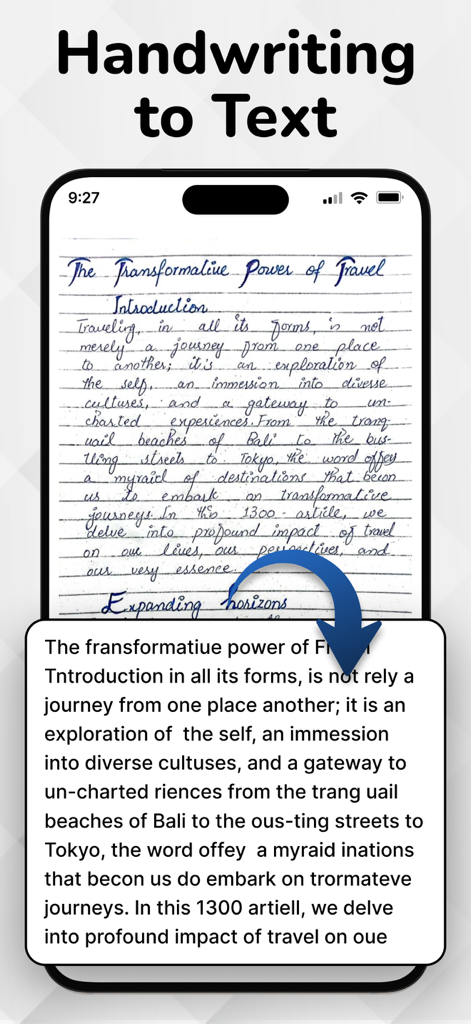 Handwriting
to Text
9:27
The Transformative Power of Travel
Introduction
Traveling, in all its forms, is not
merely a journey from one place
to another; it's an exploration of
the self, an immersion into diverse
cultures, and a gateway to un-
charted experiences. From the tranq-
uail beaches of Bali to the bus-
tling streets to Tokyo, the word offey
a myraid of destinations that becon
us to embark on transformative
journeys. In this 1300 - article, we
delve into profound impact of travel
on our lives, our perspectives, and
our very essence.
Expanding horizons
The fransformatiue power of
Tntroduction in all its forms, is not rely a
journey from one place another; it is an
exploration of the self, an immession
into diverse cultuses, and a gateway to
un-charted riences from the trang uail
beaches of Bali to the ous-ting streets to
Tokyo, the word offey a myraid inations
that becon us do embark on trormateve
journeys. In this 1300 artiell, we delve
into profound impact of travel on oue